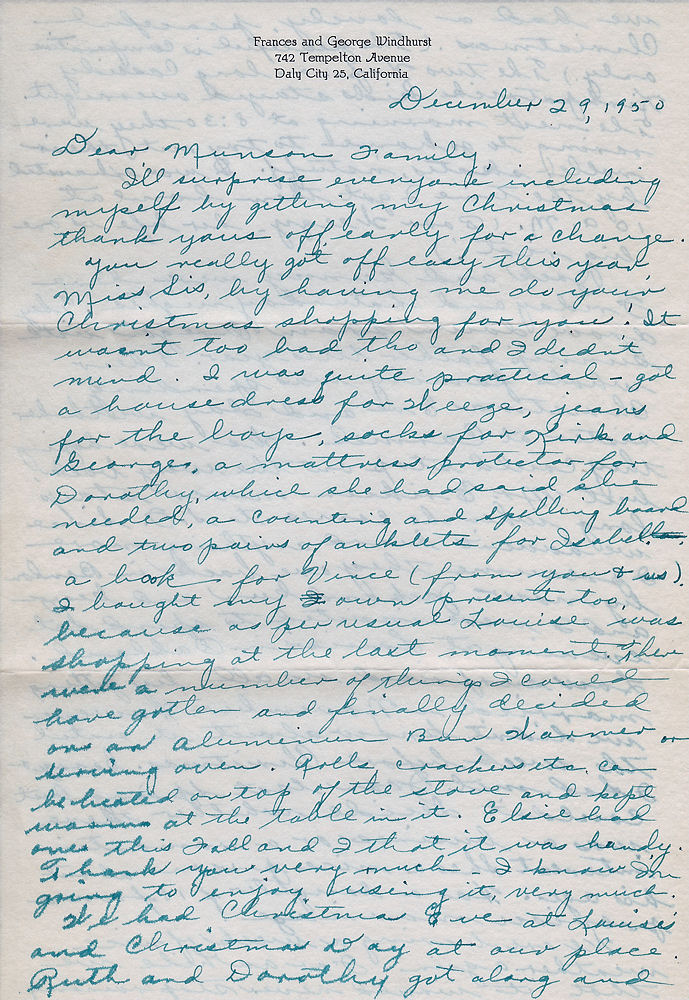 Frances and George Windhurst
742 Tempelton Avenue
Daly City 25, California
December 29, 1950
Dear Munson Family,
I'll surprise everyone including
myself by getting my Christmas
thank yous off early for a change.
You really got off easy this year
Miss Sis, by having me do your
Christmas shopping for you! It
wasn't too bad tho and I didn't
mind. I was quite practical - got
a house dress for Weege, jeans
for the boys, socks for Kirk and
George, a mattress protector for
Dorothy, which she had said she
needed, a counting and spelling board
and two pairs of anklets for Isabel
a book for Vince (from you & us).
I bought my own present too,
because as per usual Louise was
shopping at the last moment. There
were a number of things I could
have gotten and finally decided
on an Aluminium Bun Warmer or
serving oven. Rolls crackers etc. can
be heated on top of the stove and kept
warm at the table in it. Elsie had
one this Fall and I that it was handy.
Thank you very much - I know I'm
going to enjoy using it, very much.
We had Christmas Eve at Louise's
and Christmas Day at our place.
Ruth and Dorothy got along and